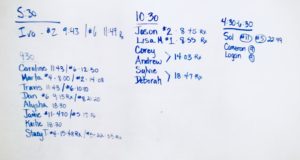 5:30
Ivo - #2 9:43 / #6 11:49 Rx
9:30
Caroline 11:43 / #12 - 12:30
Marta #4 - 8:00 / #2 - 14:08
Travis 11:43 / #6 - 10:50
Dan #6 9:15 Rx / #8
Alysha 13:30
Jamie #11 - 4:70 / #5 17:
Katie 18:30
Stacy T #4 - 15:48 Rx / #5 - 22:55 Rx
10:30
Jason #2 - 8:45 Rx
Lisa M #1 8:55 Rx
Corey
Andrew > 14:03 Rx
Salvie
Deborah > 18:47 Rx
4:30-6:30
Sol #11 #5 22:49
Cameron
Logan